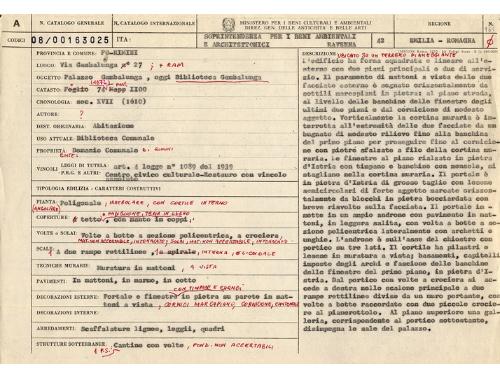 A
N. CATALOGO GENERALE
N. CATALOGO INTERNAZIONALE
MINISTERO PER I BENI CULTURALI E AMBIENTALI
DIREZ. GEN. DELLE ANTICHITÀ E BELLE ARTI
REGIONE
N.
CODICI
08/00163025
ITA:
SOPRINTENDENZA PER I BENI AMBIENTALI
E ARCHITETTONICI RAVENNA
42
EMILIA - ROMAGNA
PROVINCIA E COMUNE: FO-RIMINI
LUOGO: Via Gambalunga n° 27
OGGETTO: Palazzo Gambalunga, oggi Biblioteca Gambalunga
CATASTO: Foglio 74 Mapp 1100
CRONOLOGIA: sec. XVII (1610)
AUTORE: ?
DEST. ORIGINARIA: Abitazione
USO ATTUALE: Biblioteca Comunale
PROPRIETÀ: Demanio Comunale
VINCOLI
LEGGI DI TUTELA: art. 4 legge n° 1089 del 1939
P.R.G. E ALTRI: Centro civico culturale-Restauro con vincolo
TIPOLOGIA EDILIZIA - CARATTERI COSTRUTTIVI
PIANTA: Poligonale, CON CORTILE INTERNO
COPERTURE: a tetto, con manto in coppi
VOLTE o SOLAI: Volte a botte a sezione policentrica, a crociera,
SCALE: a due rampe rettilinee, a spirale,
TECNICHE MURARIE: Muratura in mattoni, A VISTA
PAVIMENTI: In mattoni, in marmo, in cotto
DECORAZIONI ESTERNE: Portale e finestre in pietra su parete in mattoni a vista,
DECORAZIONI INTERNE:
ARREDAMENTI: Scaffalature lignee, leggii, quadri
STRUTTURE SOTTERRANEE: Cantine con volte, FOND. NON ACCERTABILI
DESCRIZIONE: UBICATO SU UN TERRENO PIANEGGIANTE
l'edificio ha forma squadrata e lineare all'esterno con due piani principali e due di servizio. Il paramento di mattoni a vista delle due facciate esterne è segnato orizzontalmente da
cotti marcapiani in pietra al piano strada,
al livello delle banchine delle finestre degli
ultimi due piani e dal cornicione di modesto
aggetto. Verticalmente la cortina muraria è interrotta all'estremità delle due facciate da un
bugnato di modesto rilievo fino alla banchina
del primo piano per proseguire fino al cornicione con pietre sfalsate a filo della cortina muraria; le finestre al piano rialzato in pietra
d'Istria con timpano e banchine con mensole, al
primo piano più semplici e lineari. Il portale
è in pietra d'Istria di grosso taglio con lesene
semicircolari di forte aggetto scarse orizzontalmente da blocchi in pietra bocciardata con
breve risvolto sulla facciata. Il portale immette in un ampio androne con pavimento in mattoni, in leggera salita, con volta a botte a sezione policentrica lateralmente con archetti e
unghie. L'androne è sull'asse del chiostro con
portico su tre lati. Il cortile ha pilastri e
lesene in muratura a vista; basamenti, capitelli
imposte degli archi e fascione delle banchine
delle finestre del primo piano, in pietra d'Istria. Dal portico con volte a crociera si accede a destra nello scalone principale a due
rampe rettilinee divise da un muro portante, con
volte a botte raccordate con due piccole crociere al pianerottolo. Al piano superiore una galleria, corrispondente al portico sottostante,
disimpegna le sale del palazzo.